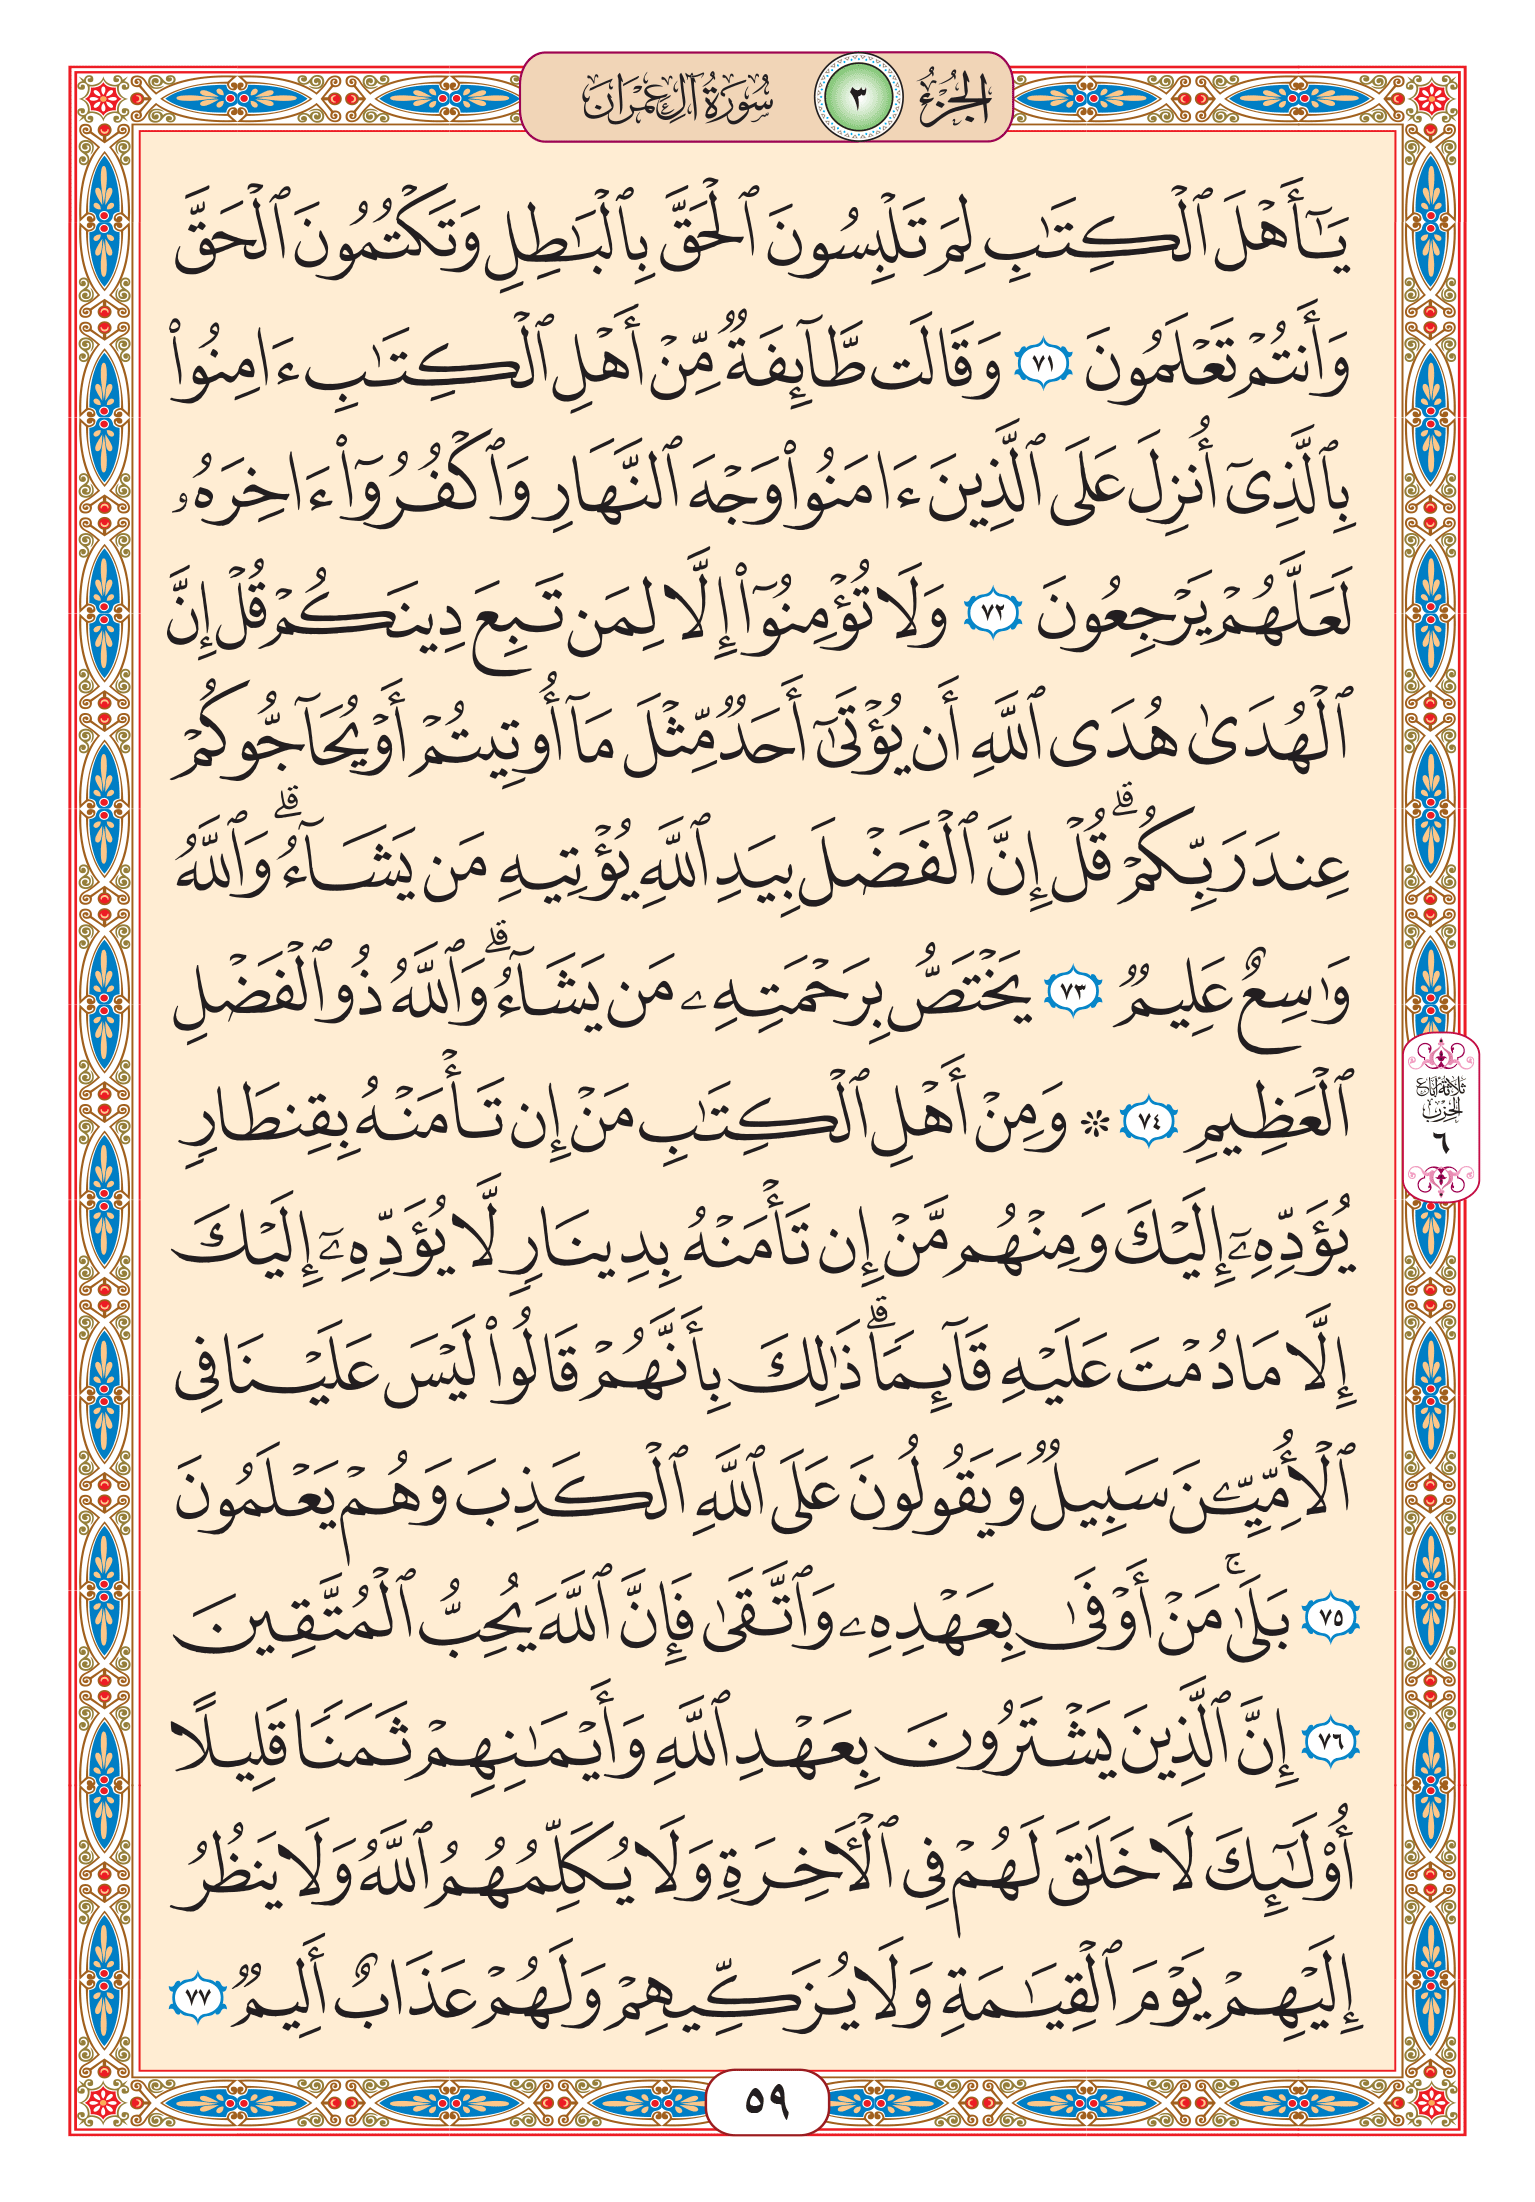 الجزء ٣ سورة آل عمران
يَـٰٓأَهۡلَ ٱلۡكِتَـٰبِ لِمَ تَلۡبِسُونَ ٱلۡحَقَّ بِٱلۡبَـٰطِلِ وَتَكۡتُمُونَ ٱلۡحَقَّ
وَأَنتُمۡ تَعۡلَمُونَ ٧١ وَقَالَت طَّآئِفَةٌ مِّنۡ أَهۡلِ ٱلۡكِتَـٰبِ ءَامِنُواْ
بِٱلَّذِىٓ أُنزِلَ عَلَى ٱلَّذِينَ ءَامَنُواْ وَجۡهَ ٱلنَّهَارِ وَٱكۡفُرُوٓاْ ءَاخِرَهُۥ
لَعَلَّهُمۡ يَرۡجِعُونَ ٧٢ وَلَا تُؤۡمِنُوٓاْ إِلَّا لِمَن تَبِعَ دِينَكُمۡ قُلۡ إِنَّ
ٱلۡهُدَىٰ هُدَى ٱللَّهِ أَن يُؤۡتَىٰٓ أَحَدٌ مِّثۡلَ مَآ أُوتِيتُمۡ أَوۡ يُحَآجُّوكُمۡ
عِندَ رَبِّكُمۡۗ قُلۡ إِنَّ ٱلۡفَضۡلَ بِيَدِ ٱللَّهِ يُؤۡتِيهِ مَن يَشَآءُۗ وَٱللَّهُ
وَٰسِعٌ عَلِيمٌ ٧٣ يَخۡتَصُّ بِرَحۡمَتِهِۦ مَن يَشَآءُۗ وَٱللَّهُ ذُو ٱلۡفَضۡلِ
ٱلۡعَظِيمِ ٧٤ ۞ وَمِنۡ أَهۡلِ ٱلۡكِتَـٰبِ مَنۡ إِن تَأۡمَنۡهُ بِقِنطَارٍ
يُؤَدِّهِۦٓ إِلَيۡكَ وَمِنۡهُم مَّنۡ إِن تَأۡمَنۡهُ بِدِينَارٍ لَّا يُؤَدِّهِۦٓ إِلَيۡكَ
إِلَّا مَا دُمۡتَ عَلَيۡهِ قَآئِمًاۗ ذَٰلِكَ بِأَنَّهُمۡ قَالُواْ لَيۡسَ عَلَيۡنَا فِى
ٱلۡأُمِّيِّـۧنَ سَبِيلٌ وَيَقُولُونَ عَلَى ٱللَّهِ ٱلۡكَذِبَ وَهُمۡ يَعۡلَمُونَ
٧٥ بَلَىٰۚ مَنۡ أَوۡفَىٰ بِعَهۡدِهِۦ وَٱتَّقَىٰ فَإِنَّ ٱللَّهَ يُحِبُّ ٱلۡمُتَّقِينَ
٧٦ إِنَّ ٱلَّذِينَ يَشۡتَرُونَ بِعَهۡدِ ٱللَّهِ وَأَيۡمَـٰنِهِمۡ ثَمَنًا قَلِيلًا
أُوْلَـٰٓئِكَ لَا خَلَـٰقَ لَهُمۡ فِى ٱلۡأَخِرَةِ وَلَا يُكَلِّمُهُمُ ٱللَّهُ وَلَا يَنظُرُ
إِلَيۡهِمۡ يَوۡمَ ٱلۡقِيَـٰمَةِ وَلَا يُزَكِّيهِمۡ وَلَهُمۡ عَذَابٌ أَلِيمٌ ٧٧
ثلاثة أرباع
الحزب
٦
٥٩